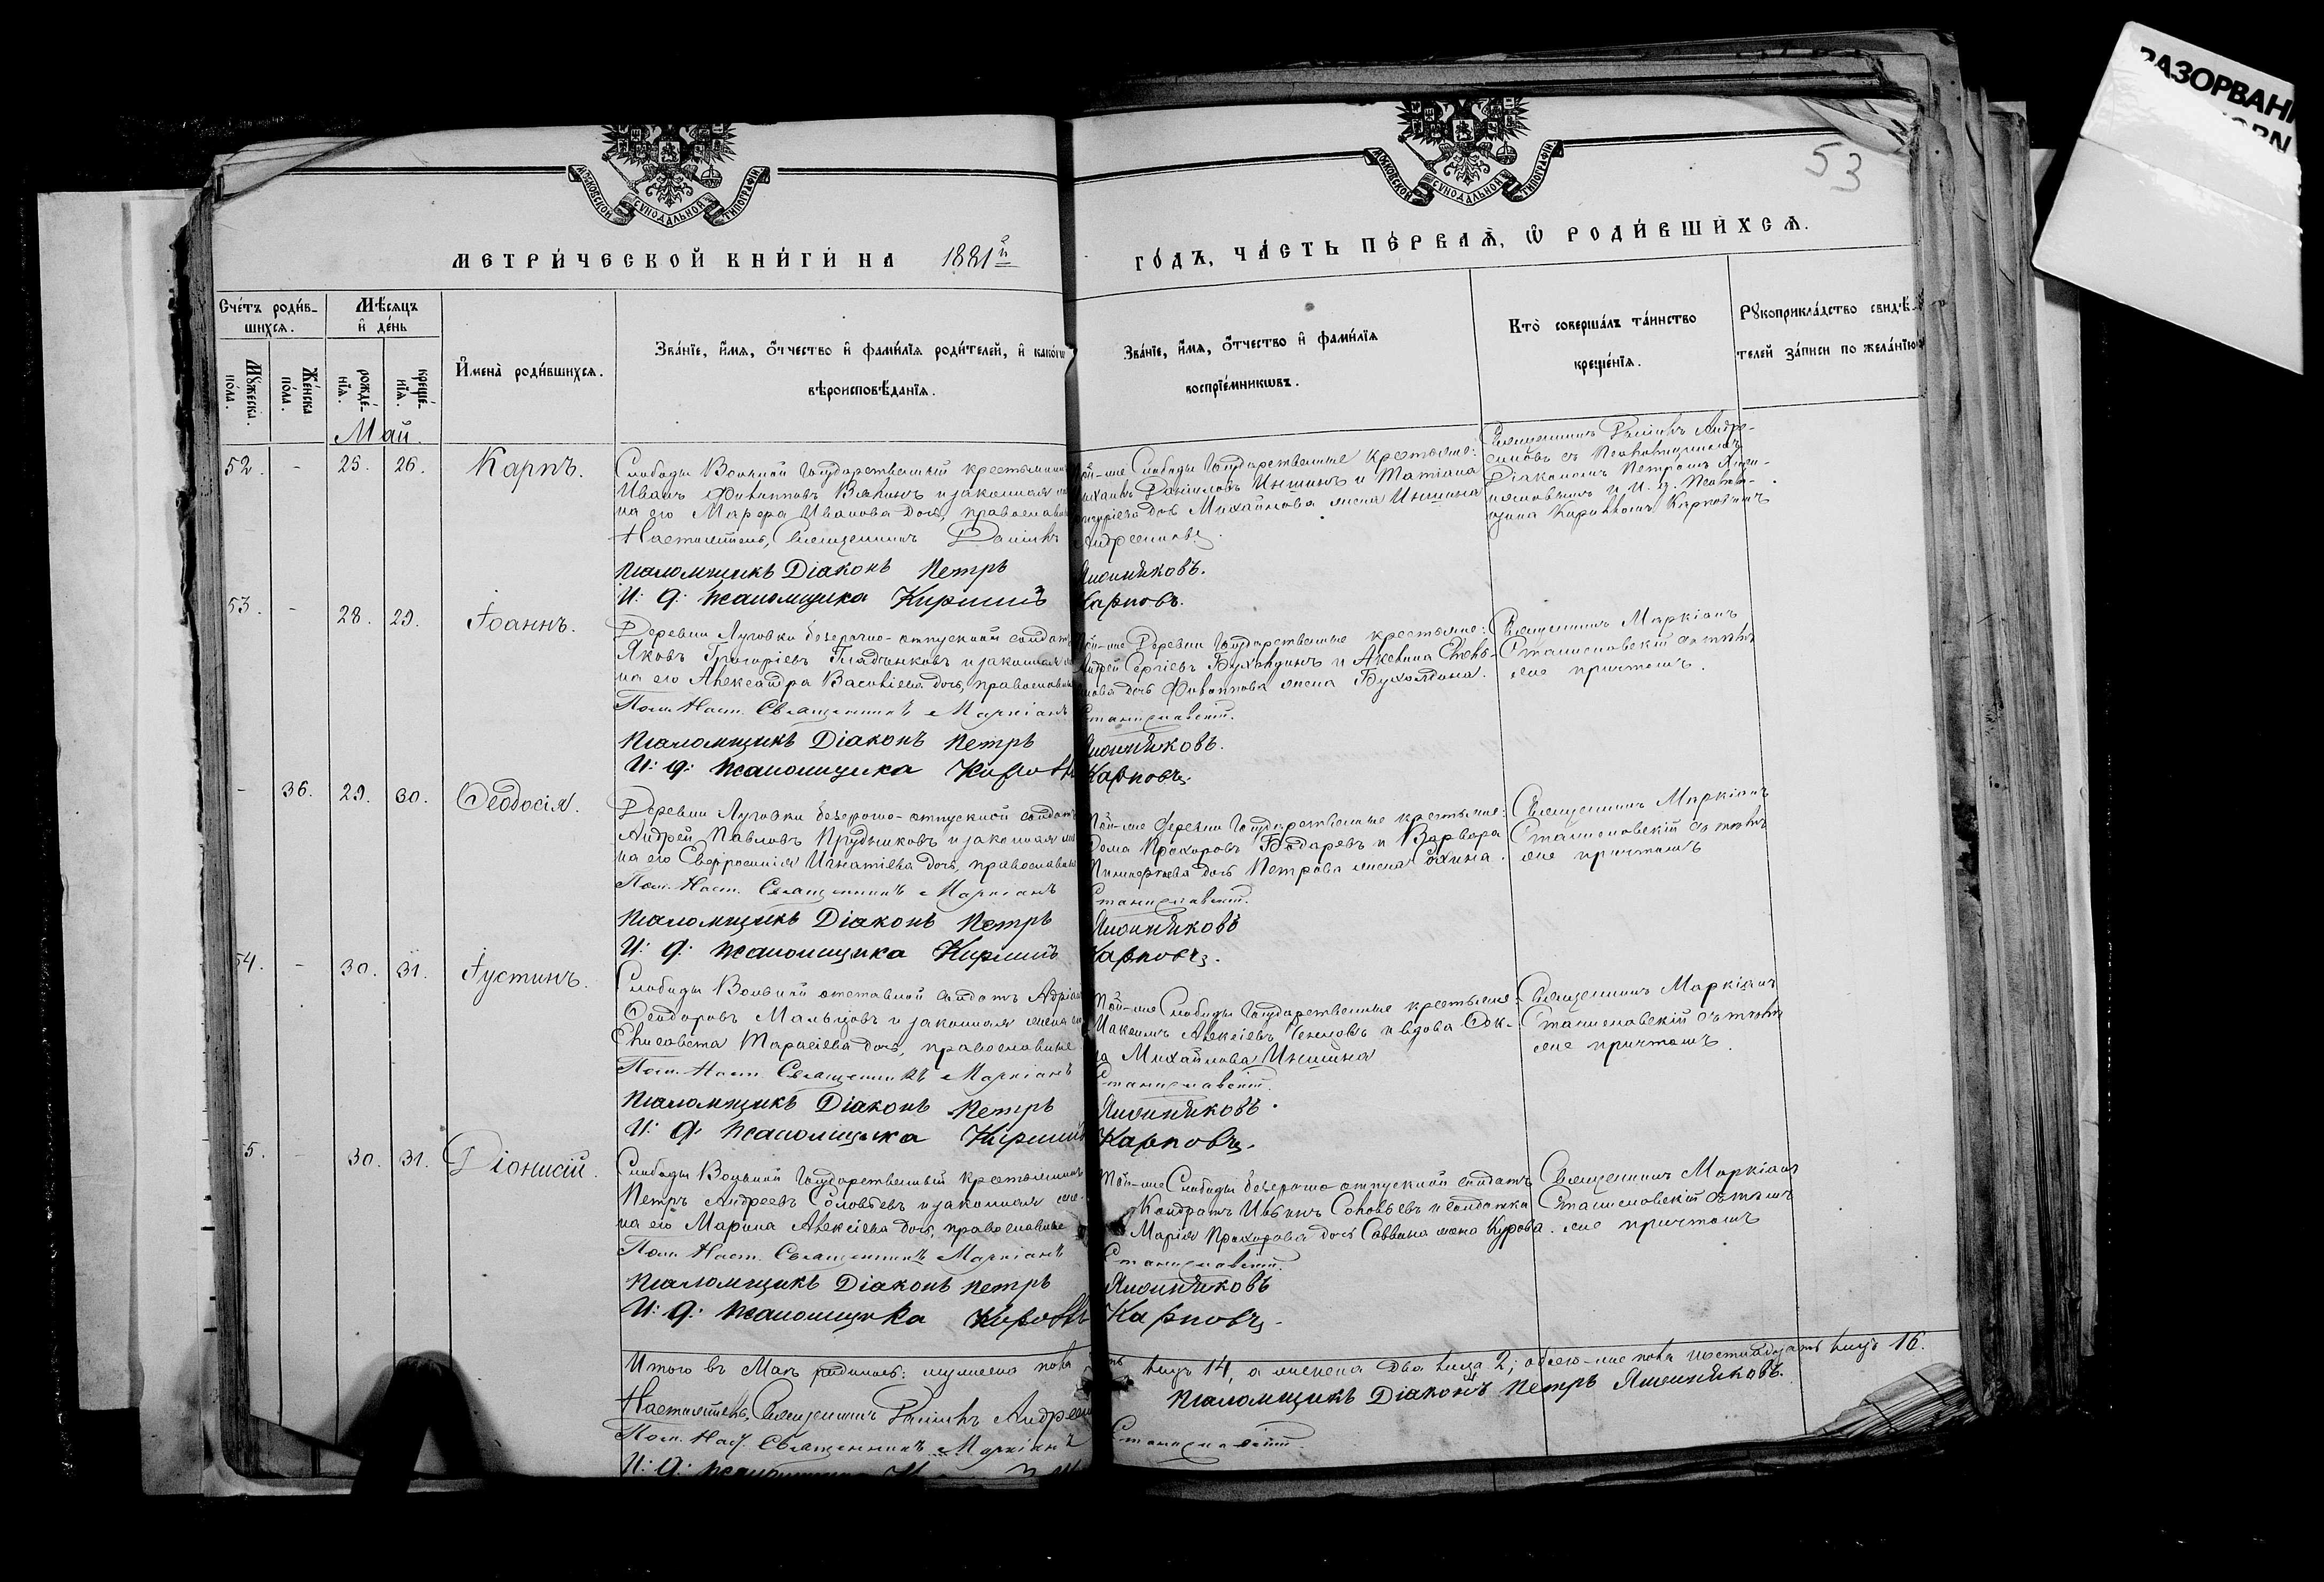 РАЗОРВАН
МОСКОВСКОЙ СѴНОДАЛЬНОЙ ТИПОГРАФІИ
МОСКОВСКОЙ СѴНОДАЛЬНОЙ ТИПОГРАФІИ
53
МЕТРИ́ЧЕСКОЙ КНИ́ГИ НА 1881й
ГО́ДЪ, ЧА́СТЬ ПЕ́РВАѦ, Ѡ҆ РОДИ́ВШИХСѦ.
Сче́тъ роди́в-
шихсѧ.
Мꙋ́жеска по́ла.
Же́нска по́ла.
Мѣ́сѧцъ и҆ де́нь
рожде́-нїѧ.
креще́-нїѧ.
И҆мена̀ роди́вшихсѧ.
Зва́нїе, и҆́мѧ, ѻ҆́тчество и҆ фами́лїѧ роди́телей, и҆ како́гѡ
вѣроисповѣ́данїѧ.
Зва́нїе, и҆́мѧ, ѻ҆́тчество и҆ фами́лїѧ
воспрїе́мникѡвъ.
Кто̀ соверша́лъ та́инство
креще́нїѧ.
Рꙋкоприкла́дство свидѣ́-
телей за́писи по жела́нїю
Май.
52. - 25. 26. Карпъ.
Слободы Вольной Государственный крестьянинъ
Иванъ Филипповъ и законная
на его Марѳа Иванова дочь, православн
Настоятель, Священникъ Даніилъ
Псаломщикъ Діаконъ Петръ
И: д: псаломщика Кириллъ
Той-же Слободы Государственные крестьяне:
Даніиловъ Иншинъ и Татіана
дочь Михайлова жена Иншина
Андреенковъ.
Карповъ.
Священникъ Даніилъ Андре-
енковъ съ Псаломщикомъ
Діакономъ Петромъ
и И. д. Псалом-
щика Кирилломъ Карповымъ.
53. - 28. 29. Іоаннъ.
Деревни Луговки безсрочно-отпускной солдатъ
Яковъ Григоріевъ Гладченковъ и законная
на его Александра Васильева дочь, православн
Пом. Наст. Священникъ Маркіанъ
Псаломщикъ Діаконъ Петръ
И: д: псаломщика Кириллъ
Той-же Деревни Государственные крестьяне:
Андрей Сергіевъ и Акилина
дочь Филиппова жена
Станиславскій.
Карповъ.
Священникъ Маркіанъ
Станиславскій съ тѣмъ
же причтомъ.
- 36. 29. 30. Ѳеодосія.
Деревни Луговки безсрочно-отпускной солдатъ
Андрей Павловъ Прудниковъ и законная
на его Евфросинія Игнатьева дочь, православн
Пом. Наст. Священникъ Маркіанъ
Псаломщикъ Діаконъ Петръ
И: д: псаломщика Кириллъ
Той-же Деревни Государственные крестьяне:
Ѳома Прохоровъ Бодаревъ и Варвара
дочь Петрова жена
Станиславскій.
Карповъ.
Священникъ Маркіанъ
Станиславскій съ тѣмъ
же причтомъ
54. - 30. 31. Іустинъ.
Слободы Вольной отставной солдатъ Адріанъ
Ѳеодоровъ Мальцовъ и законная жена его
Елисавета Тарасіева дочь, православные
Пом. Наст. Священникъ Маркіанъ
Псаломщикъ Діаконъ Петръ
И: д: псаломщика Кириллъ
Той-же Слободы Государственные крестьяне:
Максимъ Алексіевъ и вдова
Михайлова Иншина
Станиславскій.
Карповъ.
Священникъ Маркіанъ
Станиславскій съ тѣмъ
же причтомъ.
5. - 30. 31. Діонисій.
Слободы Вольной Государственный крестьянинъ
Петръ Андреевъ Соловьевъ и законная же-
на его Марина Алексіева дочь, православные
Пом. Наст. Священникъ Маркіанъ
Псаломщикъ Діаконъ Петръ
И: д: псаломщика Кириллъ
Той-же Слободы безсрочно отпускной солдатъ
Кондратъ Соловьевъ и солдатка
Марія Прохорова дочь Саввина жена Курова.
Станиславскій.
Карповъ.
Священникъ Маркіанъ
Станиславскій съ тѣмъ
же причтомъ
Итого въ Маѣ родилось: мужеска пола лицъ 14, а женска два лица 2; обоего-же пола шестнадцать лицъ 16.
Настоятель, Священникъ Даніилъ
Псаломщикъ Діаконъ Петръ
Пом. Наст. Священникъ Маркіанъ Станиславскій.
И: д: